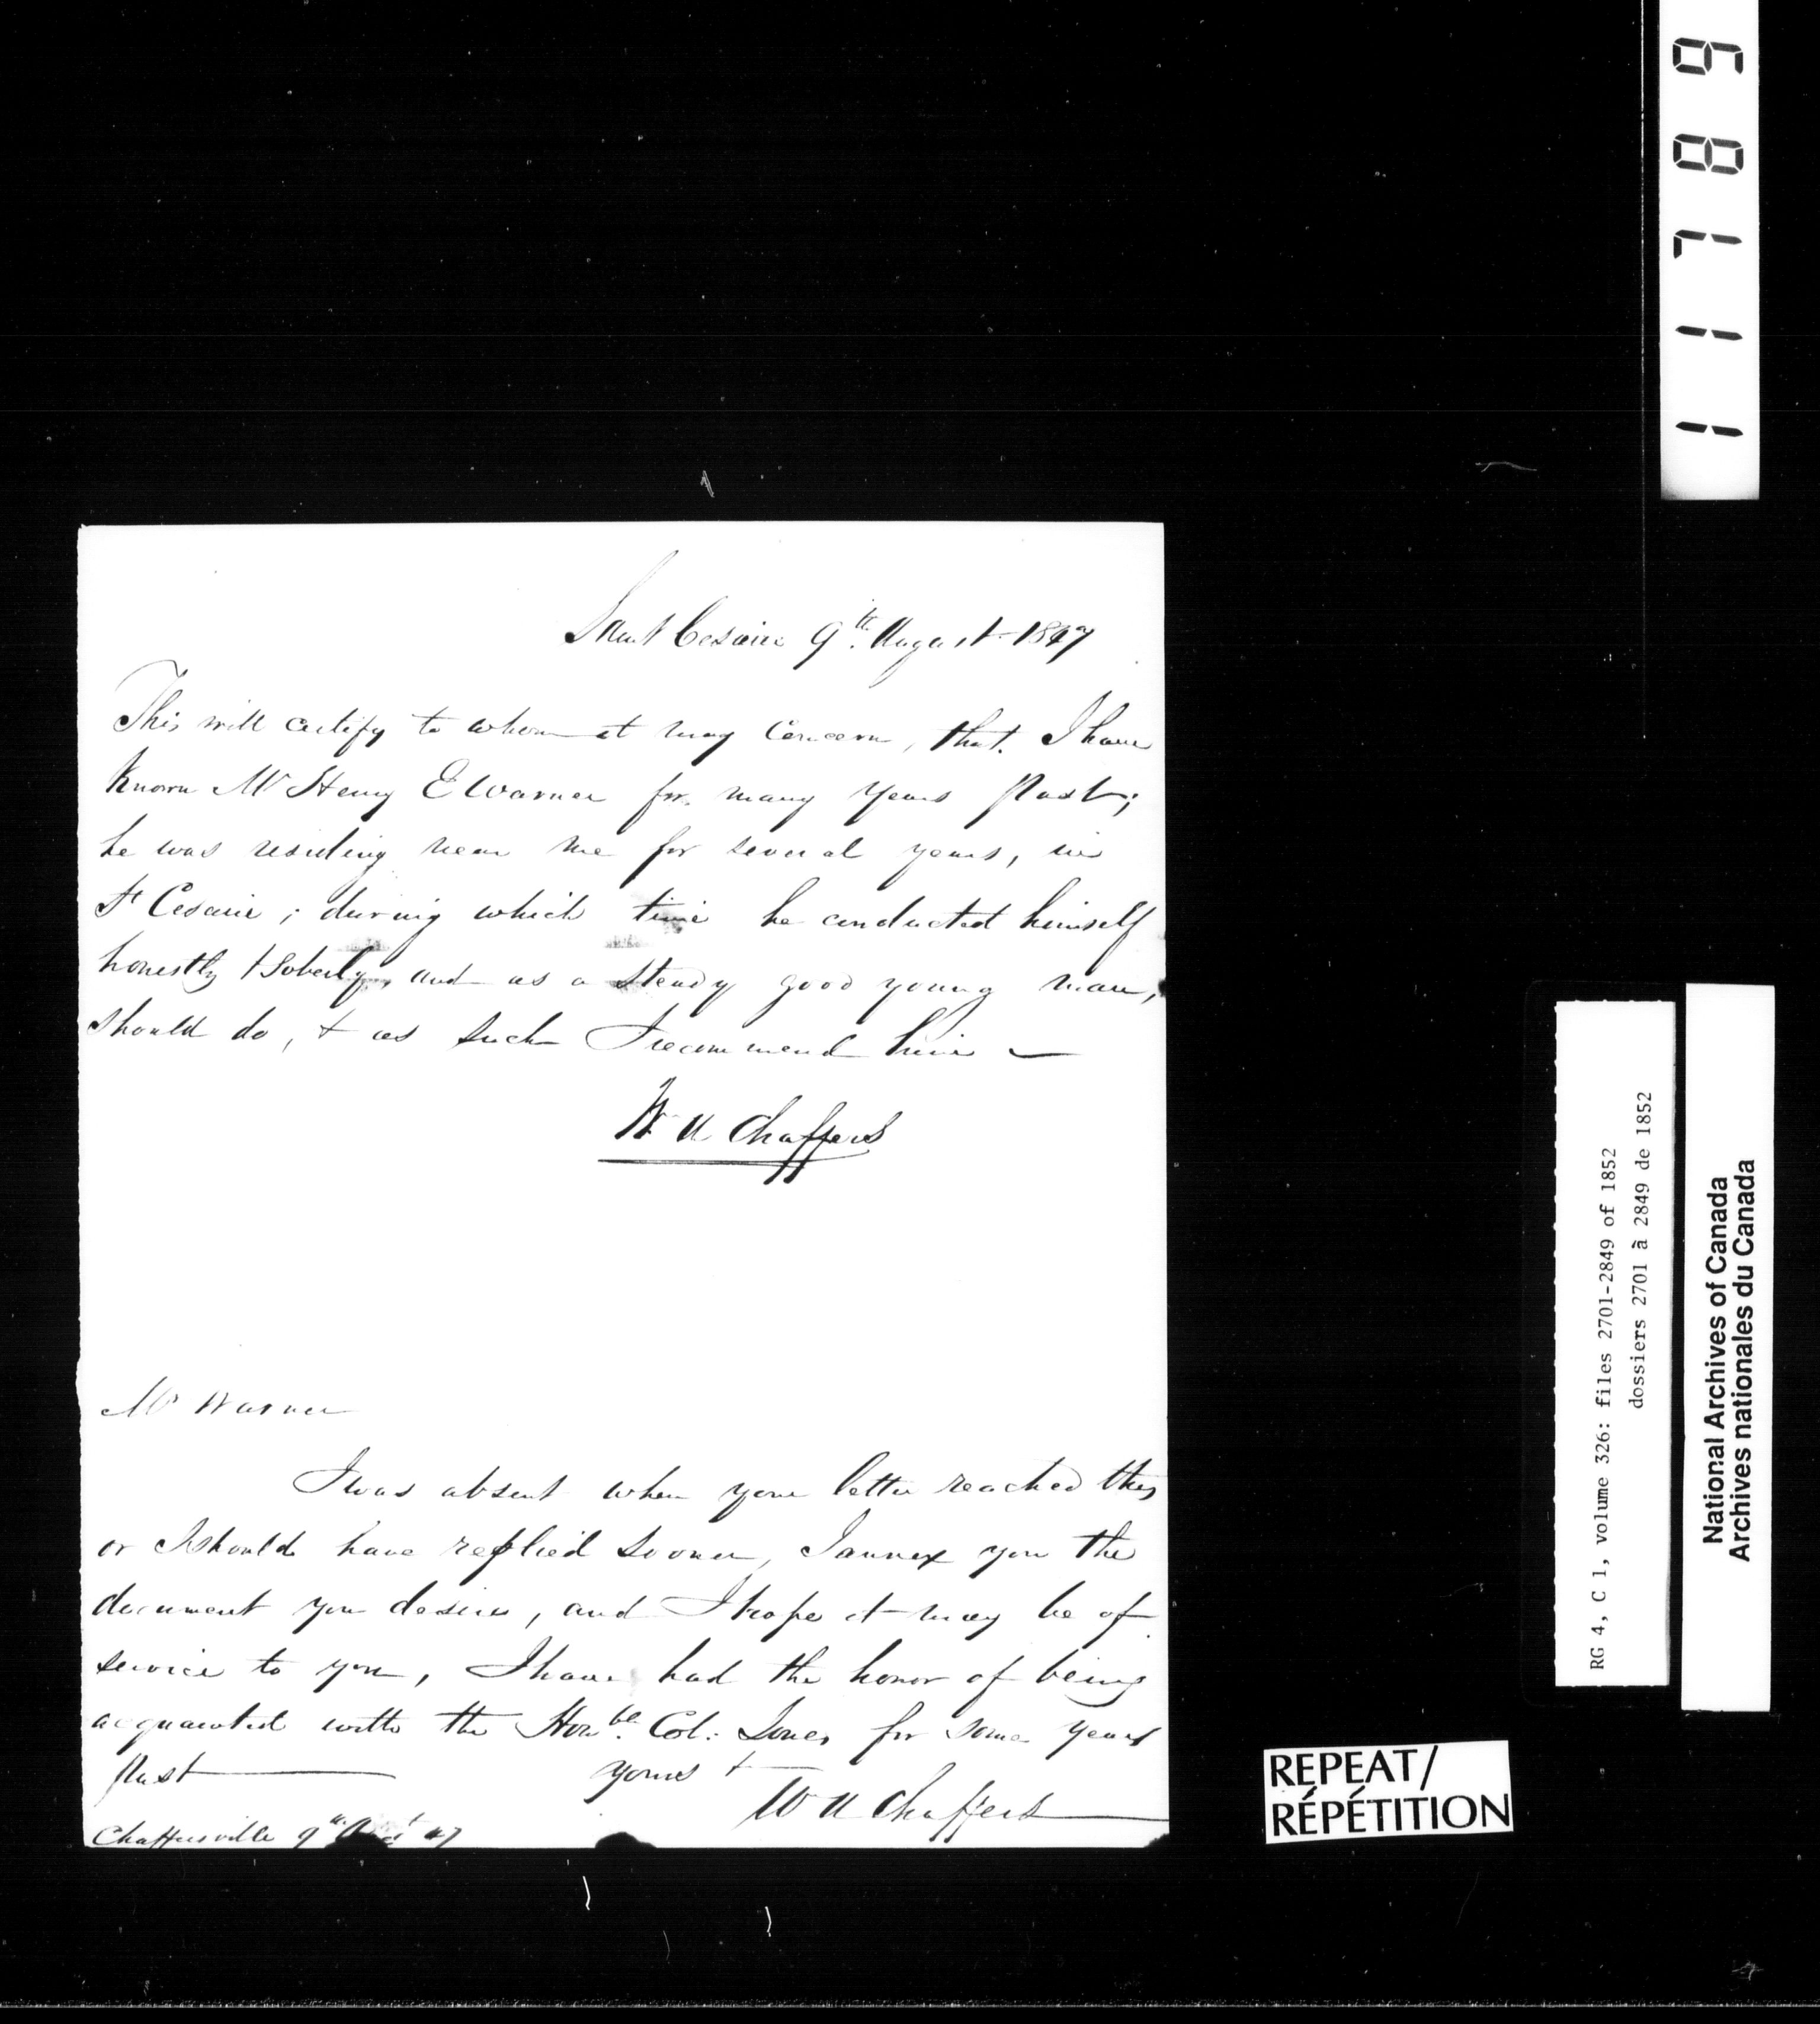 Saint Cesaire 9th. August 1847
This will certify to whom it may Concern, that. I have
known Mr Henry E Warner for many years Past;
he was residing near me for several years, in
St Cesaire; during which time he conducted himself
honestly & Soberly, and as a Steady good young man,
should do, & as such I recommend him —
Wm U Chaffers
Mr Warner
I was absent when your letter reached this
or I should have replied sooner, I annex you the
document you desire, and I hope it may be of
service to you, I have had the honor of being
acquainted with the Honble. Col: Jones for some years
Past — yours &
W U Chaffers
Chaffersville 9th 47
11789
RG 4, C 1, volume 326: files 2701-2849 of 1852
dossiers 2701 à 2849 de 1852
National Archives of Canada
Archives nationales du Canada
REPEAT/
RÉPÉTITION